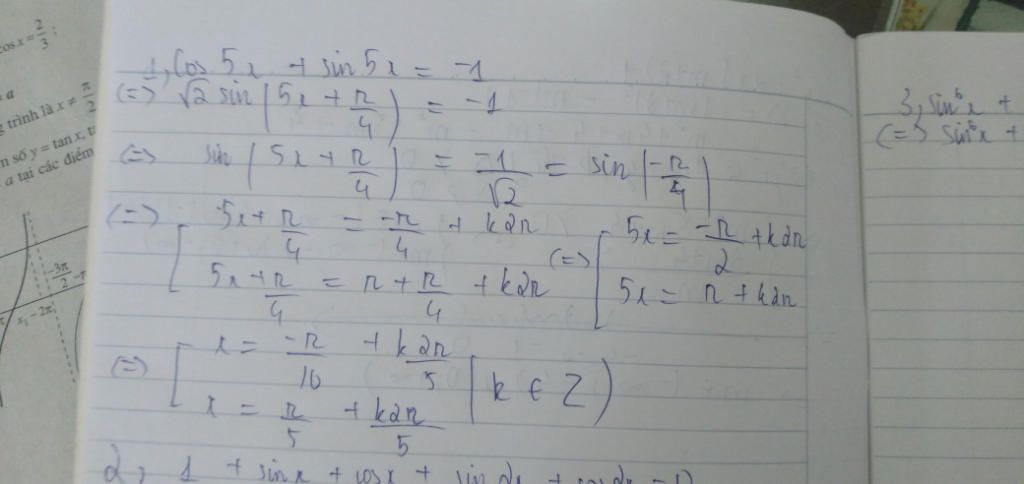 cos x = 2/3;
a
g trình là x ≠ π/2
m số y = tan x, t
a tại các điểm
-3π/2
x₁ - 2π
1, Cos 5x + sin 5x = -1
(=) √2 sin (5x + π/4) = -1
(=) sin (5x + π/4) = -1/√2 = sin (-π/4)
(=) [ 5x + π/4 = -π/4 + k2π (=) [ 5x = -π/2 + k2π
5x + π/4 = π + π/4 + k2π 5x = π + k2π
(=) [ x = -π/10 + k2π/5 (k ∈ Z)
x = π/5 + k2π/5
2, 1 + sin x + cos x + sin 2x + cos 2x = 0
3, sin⁶x +
(=) sin⁶x +